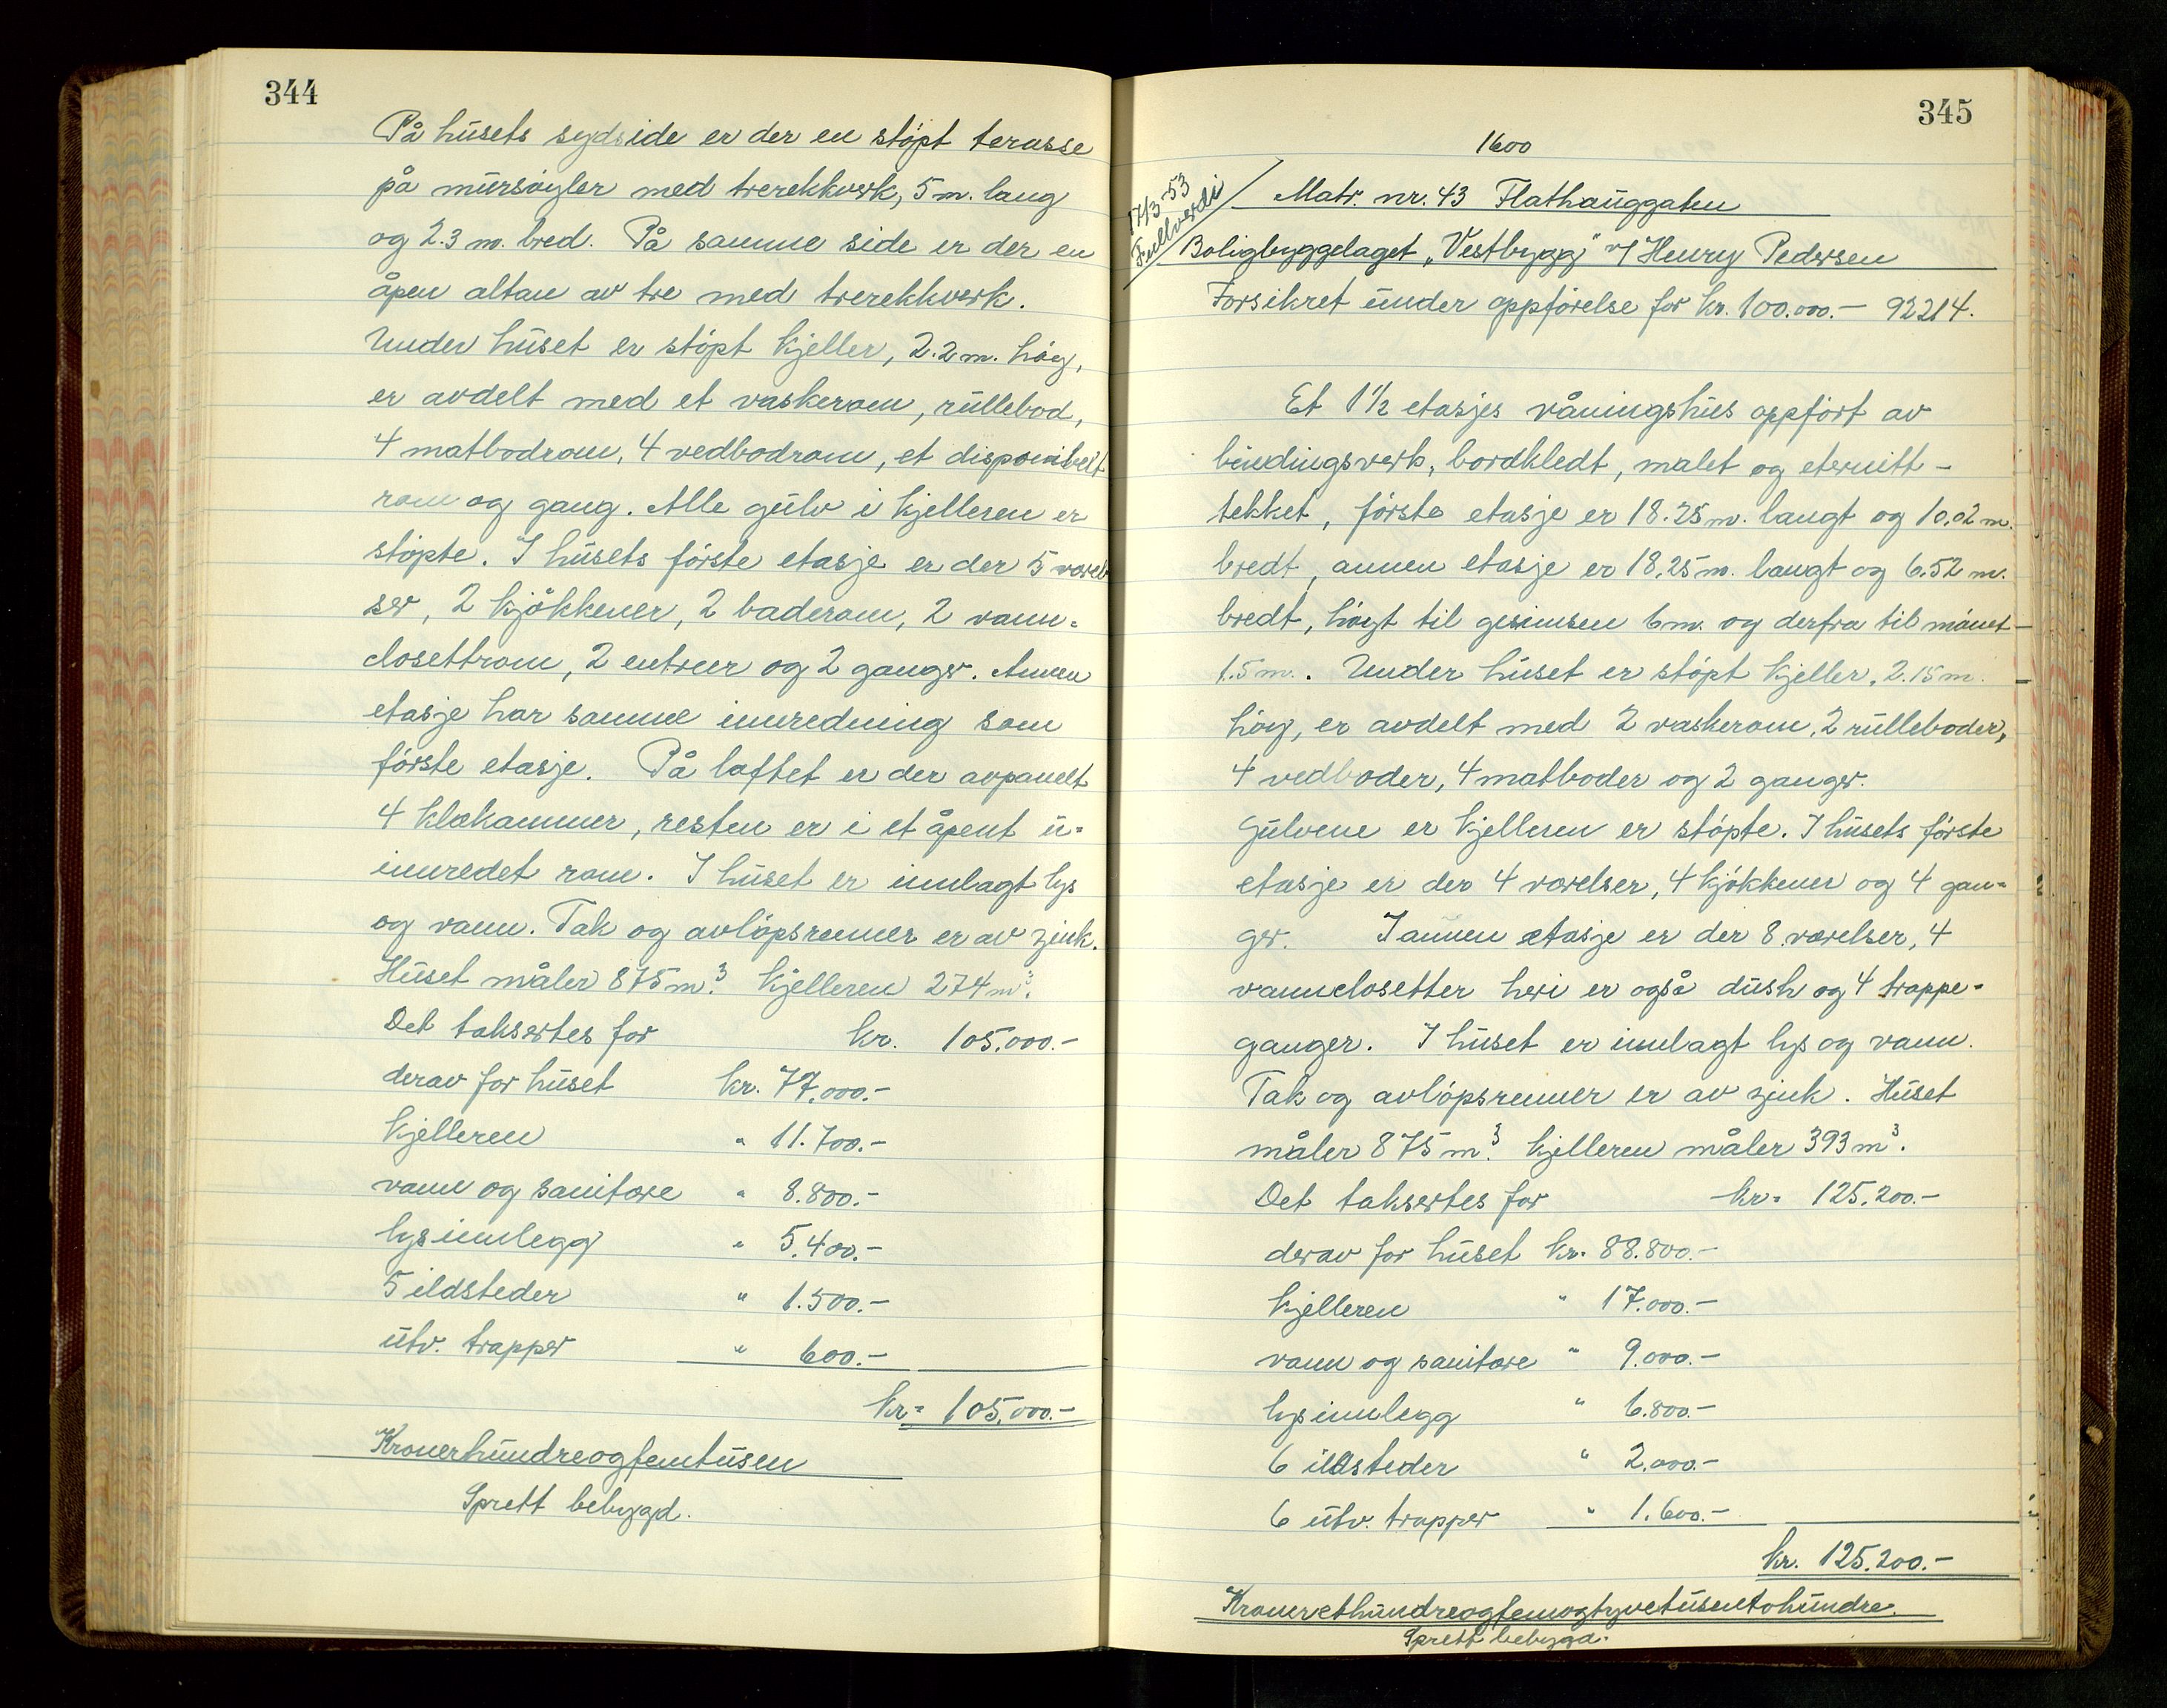 344
På húsets sydside er der en støpt terasse
på múrsøyler med trerekkverk, 5 m. lang
og 2.3 m. bred. På samme side er der en
åpen altan av tre med trerekkverk.
Under húset er støpt kjeller, 2.2 m. høg,
er avdelt med et vaskerom, rúllebod,
4 matbodrom, 4 vedbodrom, et disponibelt
rom og gang. Alle gúlv i kjelleren er
støpte. I húsets første etasje er der 5 værel
ser, 2 kjøkkener, 2 baderom, 2 vann=
closettrom, 2 entreer og 2 ganger. Annen
etasje har samme innredning som
første etasje. På loftet er der avpanelt
4 klekammer, resten er i et åpent ú=
innredet rom. I húset er innlagt lys
og vann. Tak og avløpsrenner er av zink.
Húset måler 875 m³. Kjelleren 274 m³.
Det takseres for kr. 105.000.-
derav for húset kr. 77.000.-
Kjelleren " 11.700.-
vann og sanitære " 8.800.-
lysinnlegg " 5.400.-
5 ildsteder " 1.500.-
útv. trapper " 600.-
kr= 105.000.-
Kronerhúndreogfemtúsen
Sprett bebygd.
345
1600
17/3-53
Fullverdi
Matr. nr. 43 Flathauggaten
Boligbyggelaget „Vestbygg" v/ Henry Pedersen
Forsikret únder oppførelse for kr. 100.000.- 92214.
Et 1½ etasjes våningshús oppført av
bindingsverk, bordkledt, malet og eternitt-
tekket, første etasje er 18.25 m. langt og 10.02 m.
bredt, annen etasje er 18.25 m. langt og 6.52 m.
bredt, høgt til gesimsen 6 m. og derfra til mønet-
1.5 m. . Under húset er støpt kjeller, 2.15 m. -
høg, er avdelt med 2 vaskerom, 2 rúlleboder,
4 vedboder, 4 matboder og 2 ganger.
Gúlvene er kjelleren er støpte. I húsets første
etasje er der 4 værelser, 4 kjøkkener og 4 gan=
ger. I annen etasje er der 8 værelser, 4
vannclosetter heri er også dúsh og 4 trappe=
ganger. I húset er innlagt lys og vann.
Tak og avløpsrenner er av zink. Húset
måler 875 m³. Kjelleren måler 393 m³.
Det takseres for kr= 125.200.-
derav for húset kr= 88.800.-
Kjelleren " 17.000.-
vann og sanitære " 9.000.-
lysinnlegg " 6.800.-
6 ildsteder " 2.000.-
6 útv. trapper " 1.600.-
kr. 125.200.-
Kronerethúndreogfemogtyvetúsentohúndre.
Sprett bebygd.